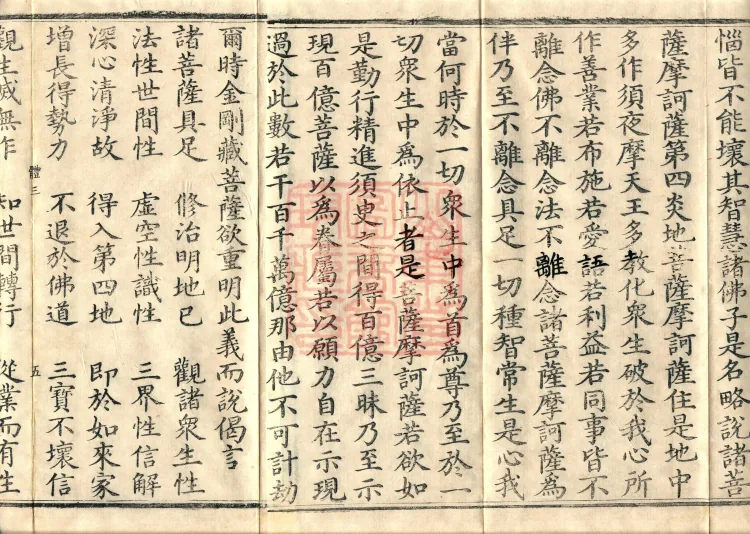 惱皆不能壞其智慧諸佛子是名略說諸菩
薩摩訶薩第四炎地菩薩摩訶薩住是地中
多作須夜摩天王多教化衆生破於我心所
作善業若布施若愛語若利益若同事皆不
離念佛不離念法不離念諸菩薩摩訶薩爲
伴乃至不離念具足一切種智常生是心我
當何時於一切衆生中爲首爲尊乃至於一
切衆生中爲依止者是菩薩摩訶薩若欲如
是勤行精進須臾之間得百億三昧乃至示
現百億菩薩以爲眷屬若以願力自在示現
過於此數若干百千萬億那由他不可計劫
爾時金剛藏菩薩欲重明此義而說偈言
諸菩薩具足 修治明地已 觀諸衆生性
法性世間性 虛空性識性 三界性信解
深心清淨故 得入第四地 即於如來家
增長得勢力 不退於佛道 三寶不壞信
體三 五
觀生滅無作 知世間轉行 從業而有生